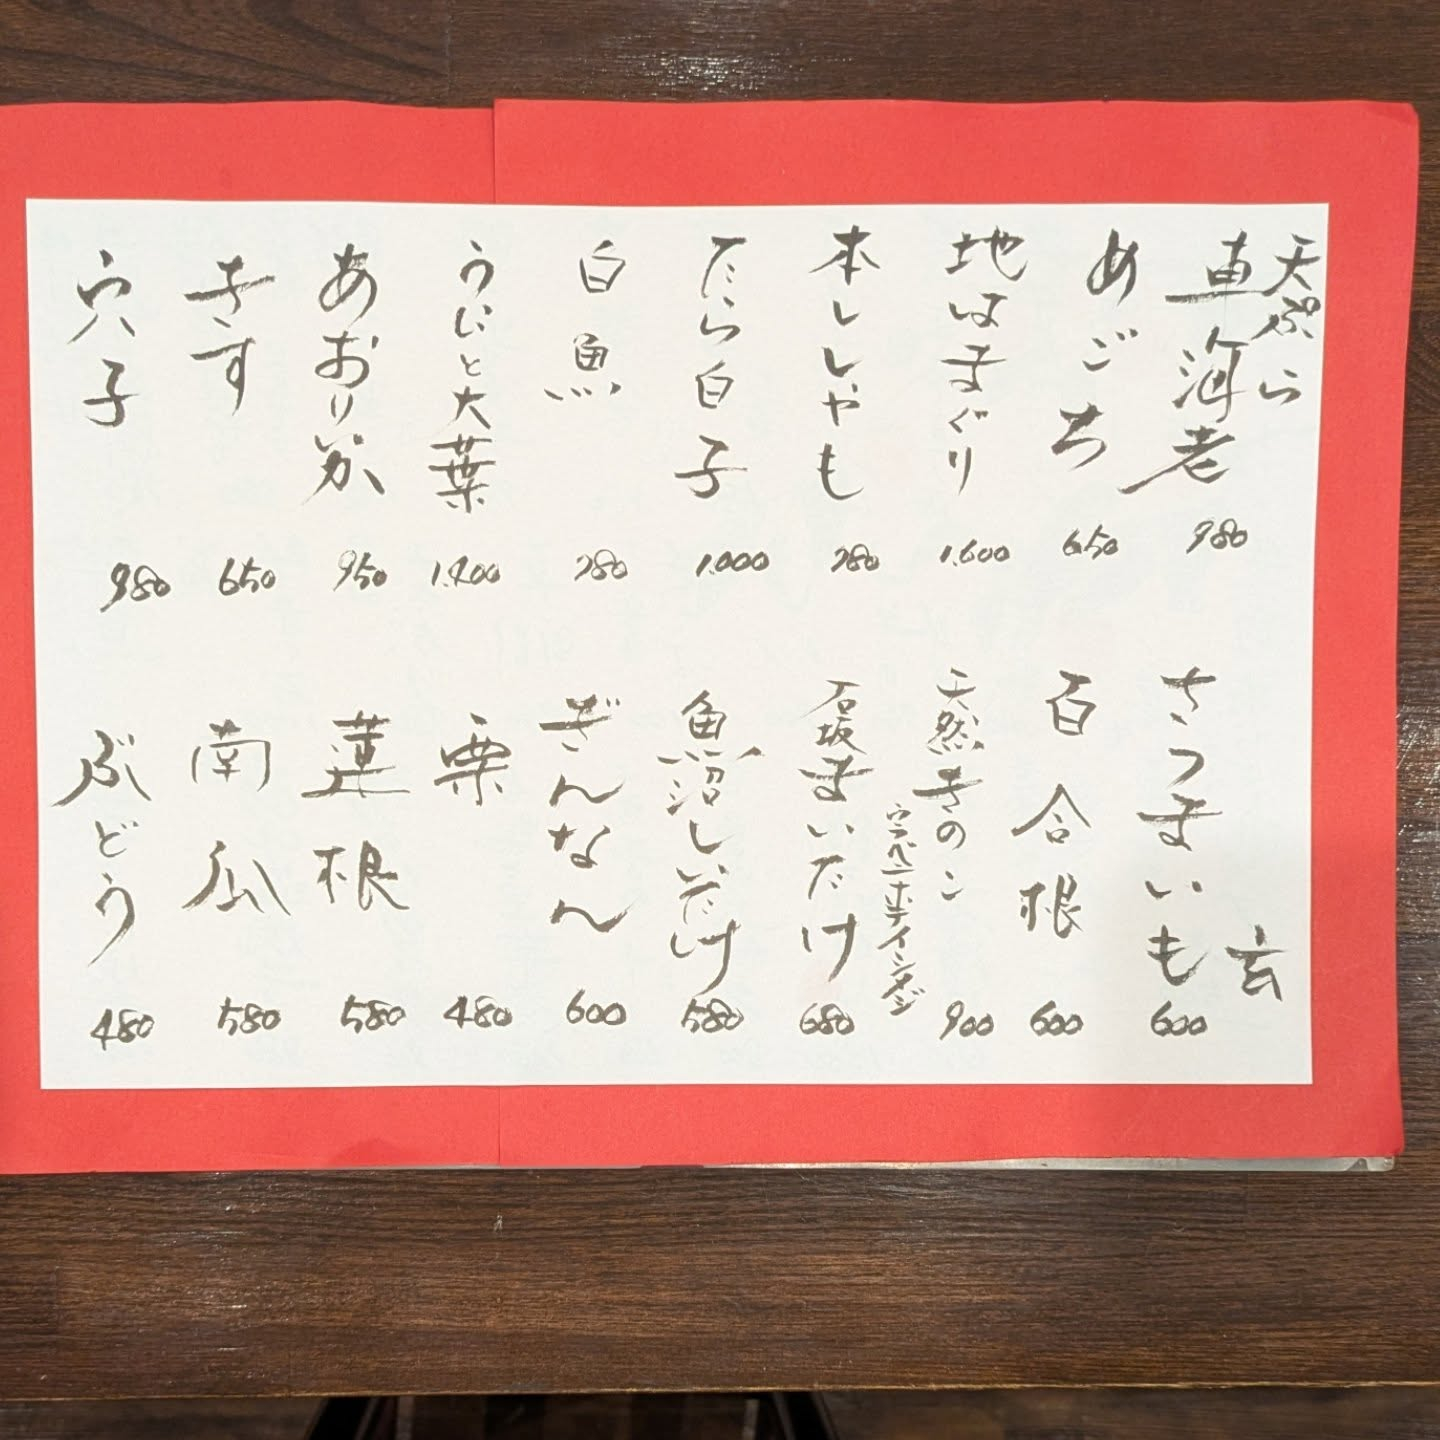 天ぷら
車海老 980
めごち 650
地はまぐり 1.600
本ししゃも 780
たら白子 1.000
白魚 780
うにと大葉
あおりいか 950
きす 650
穴子 980
さつまいも 600
百合根 600
天然きのこ 900
ウラベニホテイシメジ
石坂まいたけ 680
魚沼しいたけ 580
ぎんなん 600
栗 480
蓮根 580
南瓜 580
ぶどう 480
玄